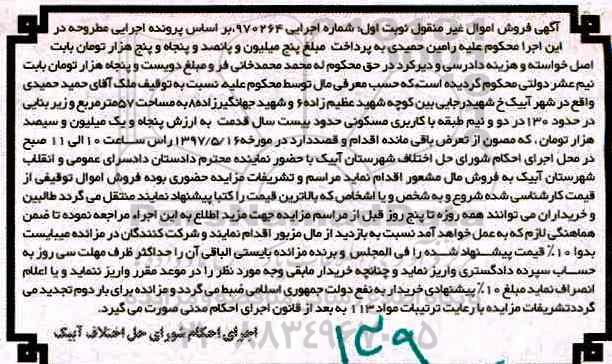 آگهی فروش اموال غیر منقول نوبت اول: شماره اجرایی ۹۷۰۲۶۴،بر اساس پرونده اجرایی مطروحه در
این اجرا محکوم علیه رامین حمیدی به پرداخت مبلغ پنج میلیون و پانصد و پنجاه و پنج هزار تومان بابت
اصل خواسته و هزینه دادرسی و دیرکرد در حق محکوم له محمد محمدخانی فر و مبلغ دویست و پنجاه هزار تومان بابت
نیم عشر دولتی محکوم گردیده است،که حسب معرفی مال توسط محکوم علیه نسبت به توقیف ملک آقای حمید حمیدی
واقع در شهر آبیک خ شهیدرجایی بین کوچه شهید عظیم زاده۶ و شهید جهانگیرزاده۸ به مساحت ۵۷مترمربع و زیر بنایی
در حدود ۱۳۰در دو و نیم طبقه با کاربری مسکونی حدود بیست سال قدمت به ارزش پنجاه و یک میلیون و سیصد
هزار تومان ، که مصون از تعرض باقی مانده اقدام و قصددارد در مورخه۱۳۹۷/۵/۱۶راس ساعت ۱۰الی ۱۱ صبح
در محل اجرای احکام شورای حل اختلاف شهرستان آبیک با حضور نماینده محترم دادستان دادسرای عمومی و انقلاب
شهرستان آبیک به فروش مال مشعور اقدام نماید مراسم و تشریفات مزایده حضوری بوده فروش اموال توقیفی از
قیمت کارشناسی شده شروع و به شخص و یا اشخاص که بالاترین قیمت را کتبا پیشنهاد نمایند منتقل می گردد طالبین
و خریداران می توانند همه روزه تا پنج روز قبل از مراسم مزایده جهت مزید اطلاع به این اجراء مراجعه نموده تا ضمن
هماهنگی لازم که به عمل خواهد آمد نسبت به بازدید از مال مزبور اقدام نمایند و شرکت کنندگان در مزائده میبایست
بدوا ۱۰٪ قیمت پیشنهاد شده را فی المجلس و برنده مزائده بایستی الباقی آن را حداکثر ظرف مهلت سی روز به
حساب سپرده دادگستری واریز نماید و چنانچه خریدار مابقی وجه مورد نظر را در موعد مقرر واریز ننماید و یا اعلام
انصراف نماید مبلغ ۱۰٪ پیشنهادی خریدار به نفع دولت جمهوری اسلامی ضبط می گردد و مزائده برای بار دوم تجدید می
گرددتشریفات مزایده با رعایت ترتیبات مواد۱۱۳ به بعد از قانون اجرای احکام مدنی صورت می گیرد.
اجرای احکام شورای حل اختلاف آبیک
۱۳۹